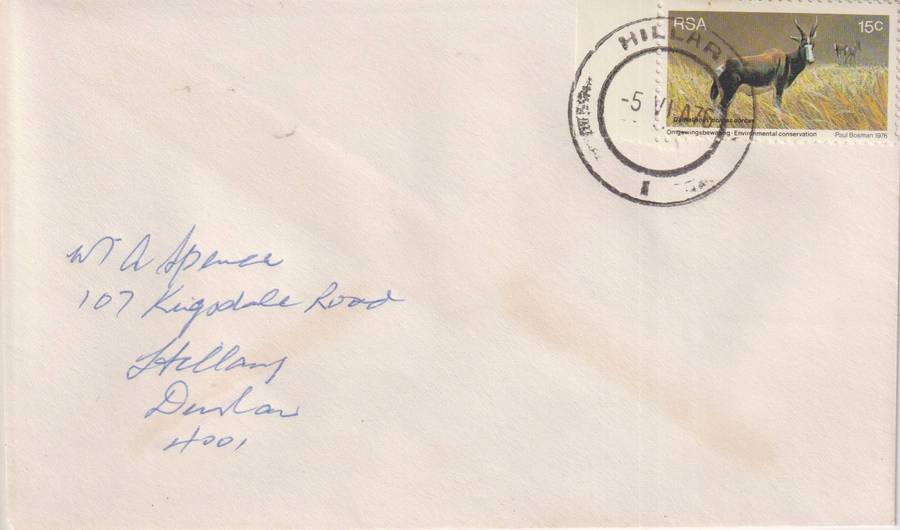 HILLAR
-5 VI A76
1
RSA 15c
Damaliscus dorcas dorcas
Omgewingsbewaring · Environmental conservation Paul Bosman 1976
W A Spence
107 Kingsdale Road
Hillary
Durban
4001